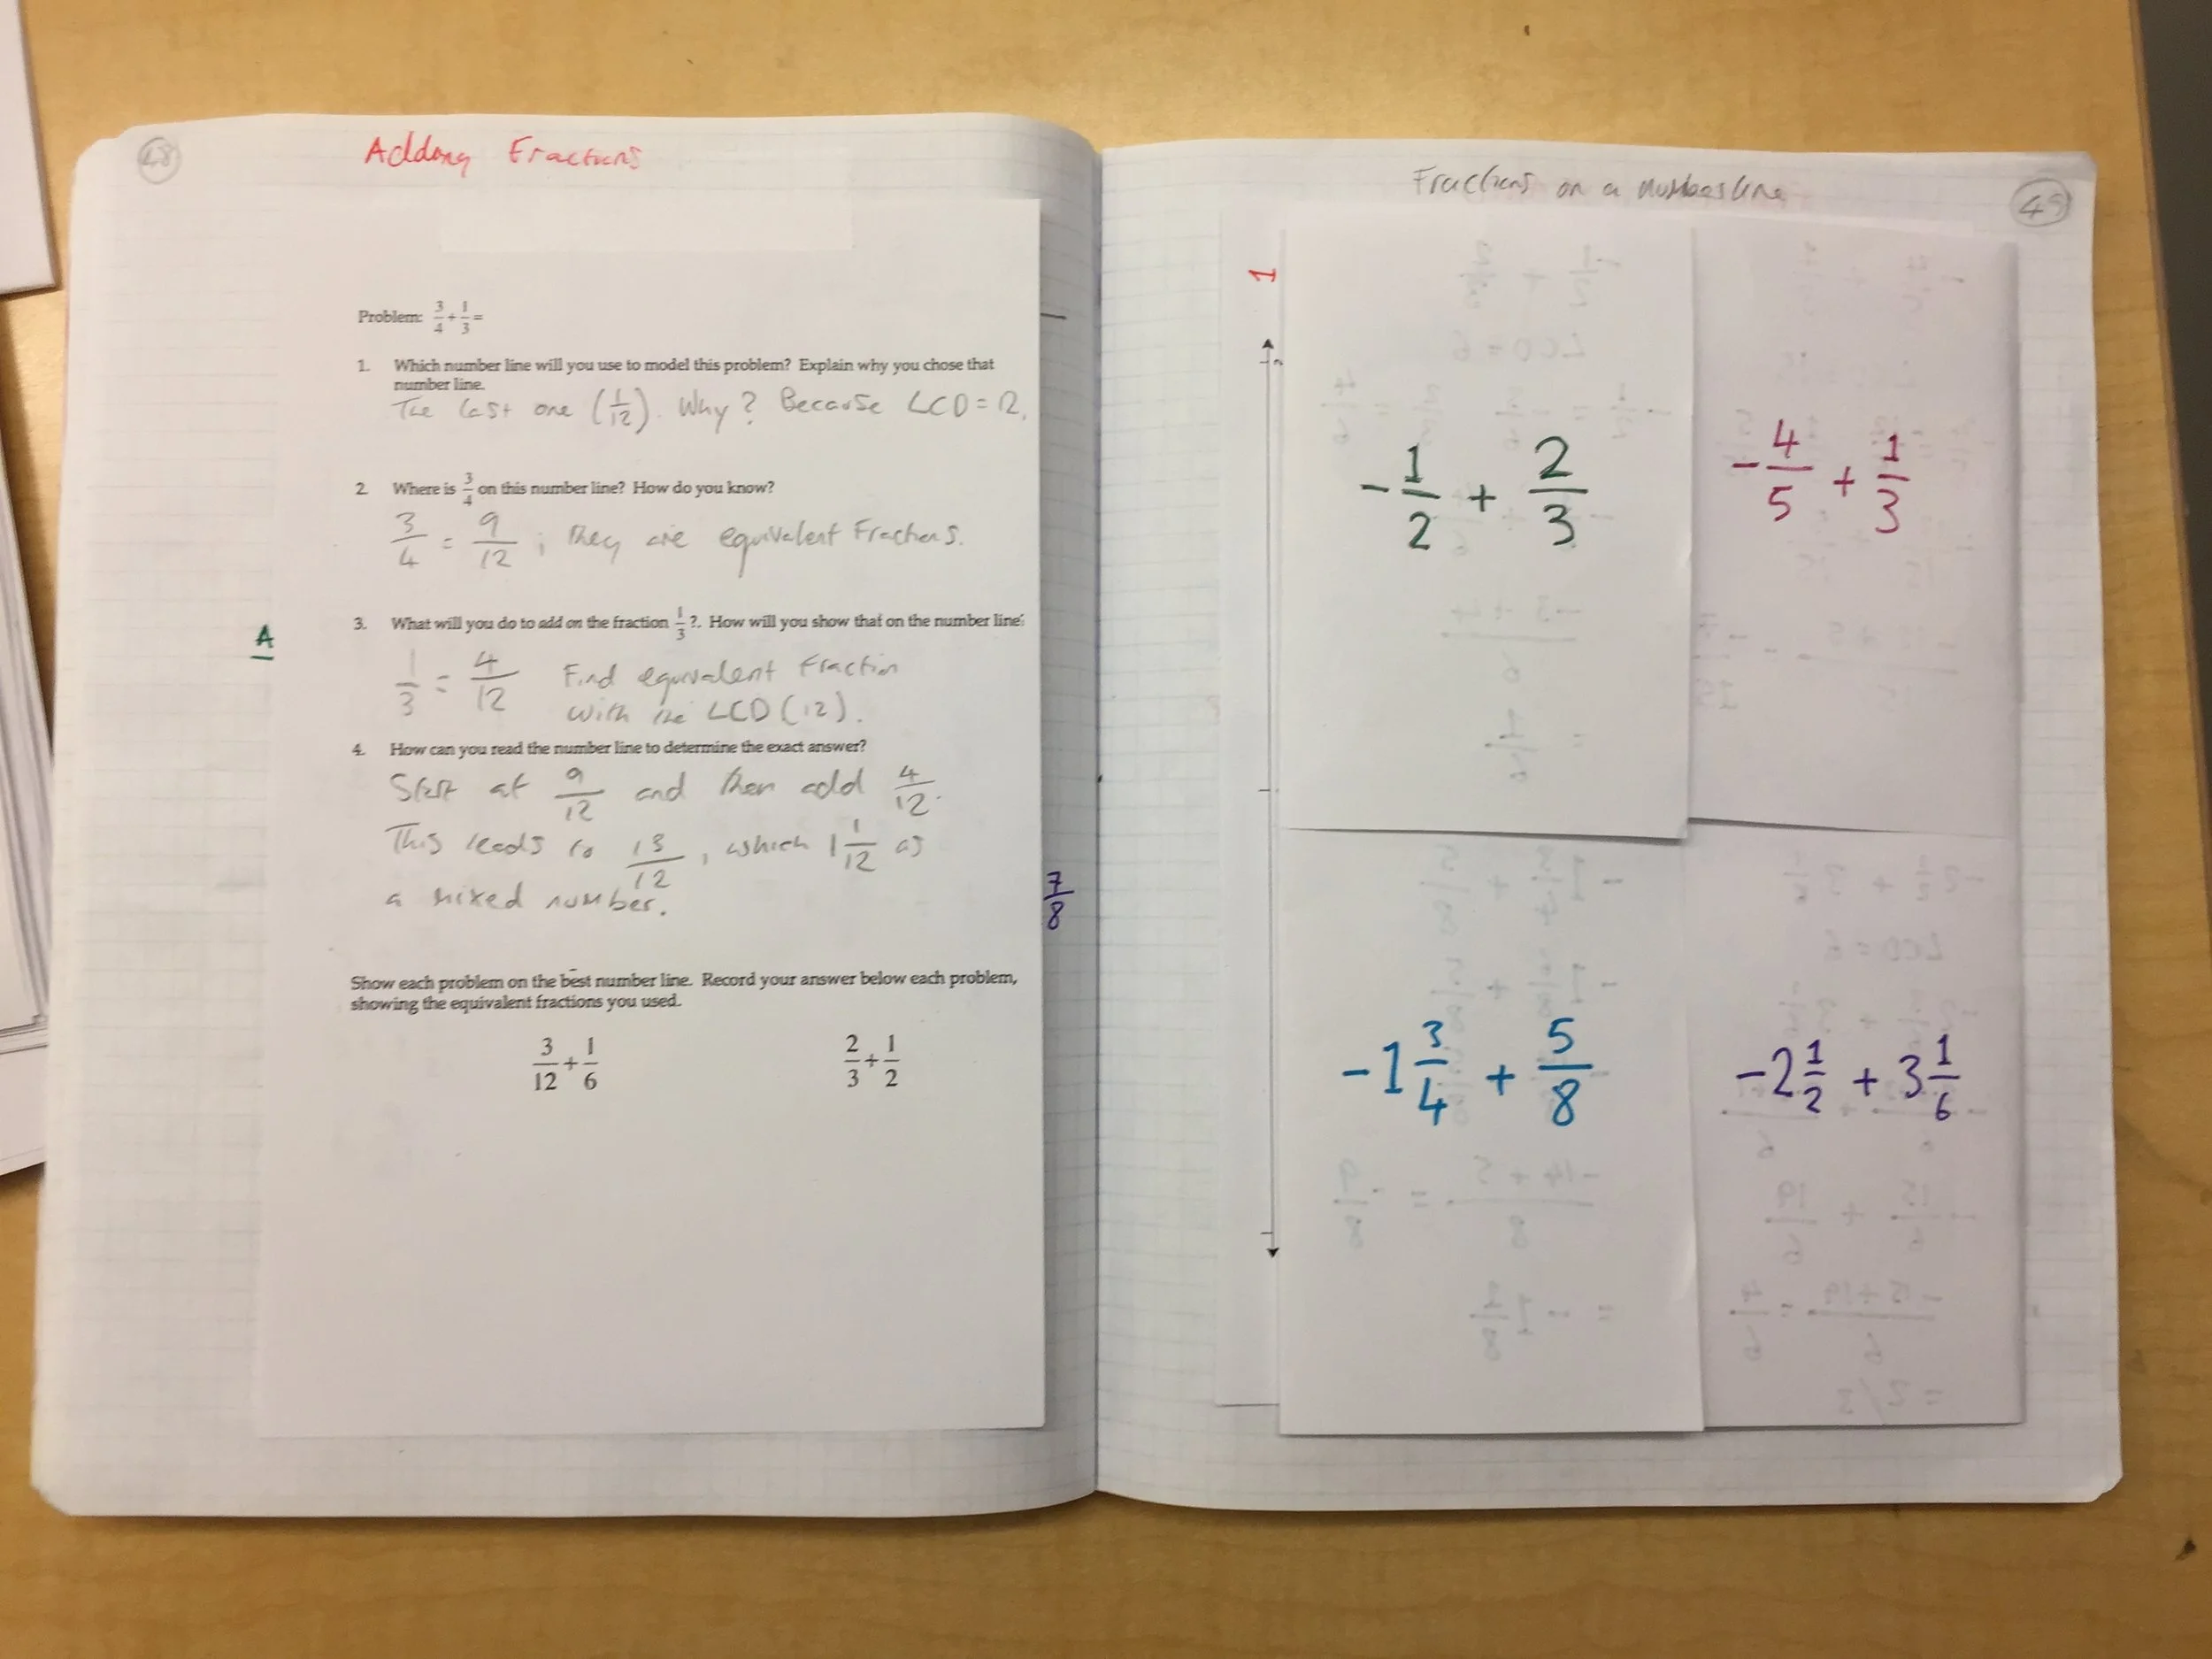 48
Adding Fractions
Problem: 3/4 + 1/3 =
1. Which number line will you use to model this problem? Explain why you chose that
number line.
The last one (1/12). Why? Because LCD = 12.
2. Where is 3/4 on this number line? How do you know?
3/4 = 9/12 ; they are equivalent Fractions.
3. What will you do to add on the fraction 1/3 ?. How will you show that on the number line
1/3 = 4/12 Find equivalent Fraction
with the LCD (12).
A
4. How can you read the number line to determine the exact answer?
Start at 9/12 and then add 4/12.
This leads to 13/12, which 1 1/12 as
a mixed number.
7/8
Show each problem on the best number line. Record your answer below each problem,
showing the equivalent fractions you used.
3/12 + 1/6
2/3 + 1/2
Fractions on a Number line
49
1
-1/2 + 2/3
-4/5 + 1/3
-1 3/4 + 5/8
-2 1/2 + 3 1/6